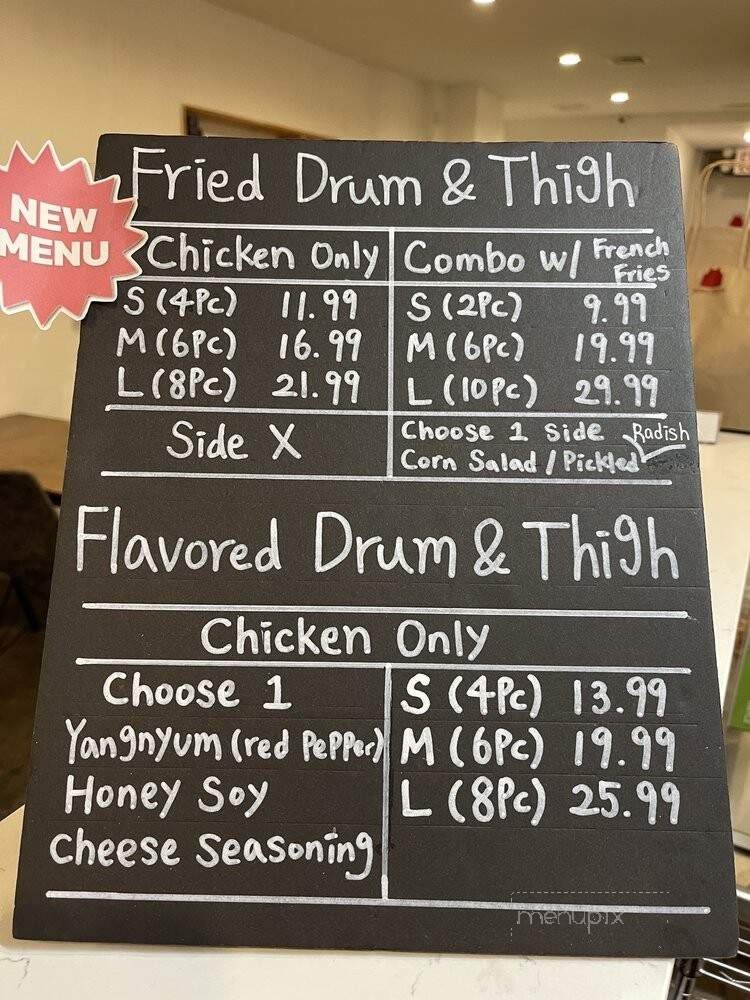 NEW
MENU
Fried Drum & Thigh
Chicken Only
Combo w/ French Fries
S (4Pc) 11.99
S (2Pc) 9.99
M (6Pc) 16.99
M (6Pc) 19.99
L (8Pc) 21.99
L (10Pc) 29.99
Side X
Choose 1 Side
Corn Salad / Pickled Radish
Flavored Drum & Thigh
Chicken Only
Choose 1
S (4Pc) 13.99
Yangnyum (red Pepper)
M (6Pc) 19.99
Honey Soy
L (8Pc) 25.99
Cheese Seasoning
menupix